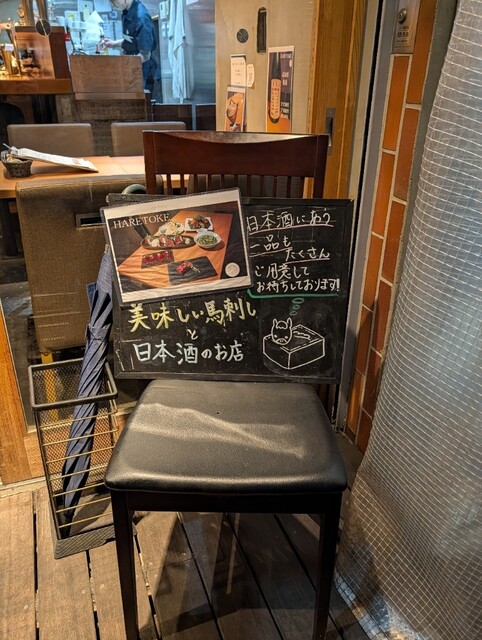 HARETOKE
日本酒に合う
一品も
たくさん
ご用意して
お待ちしております!
美味しい馬刺し
と
日本酒のお店